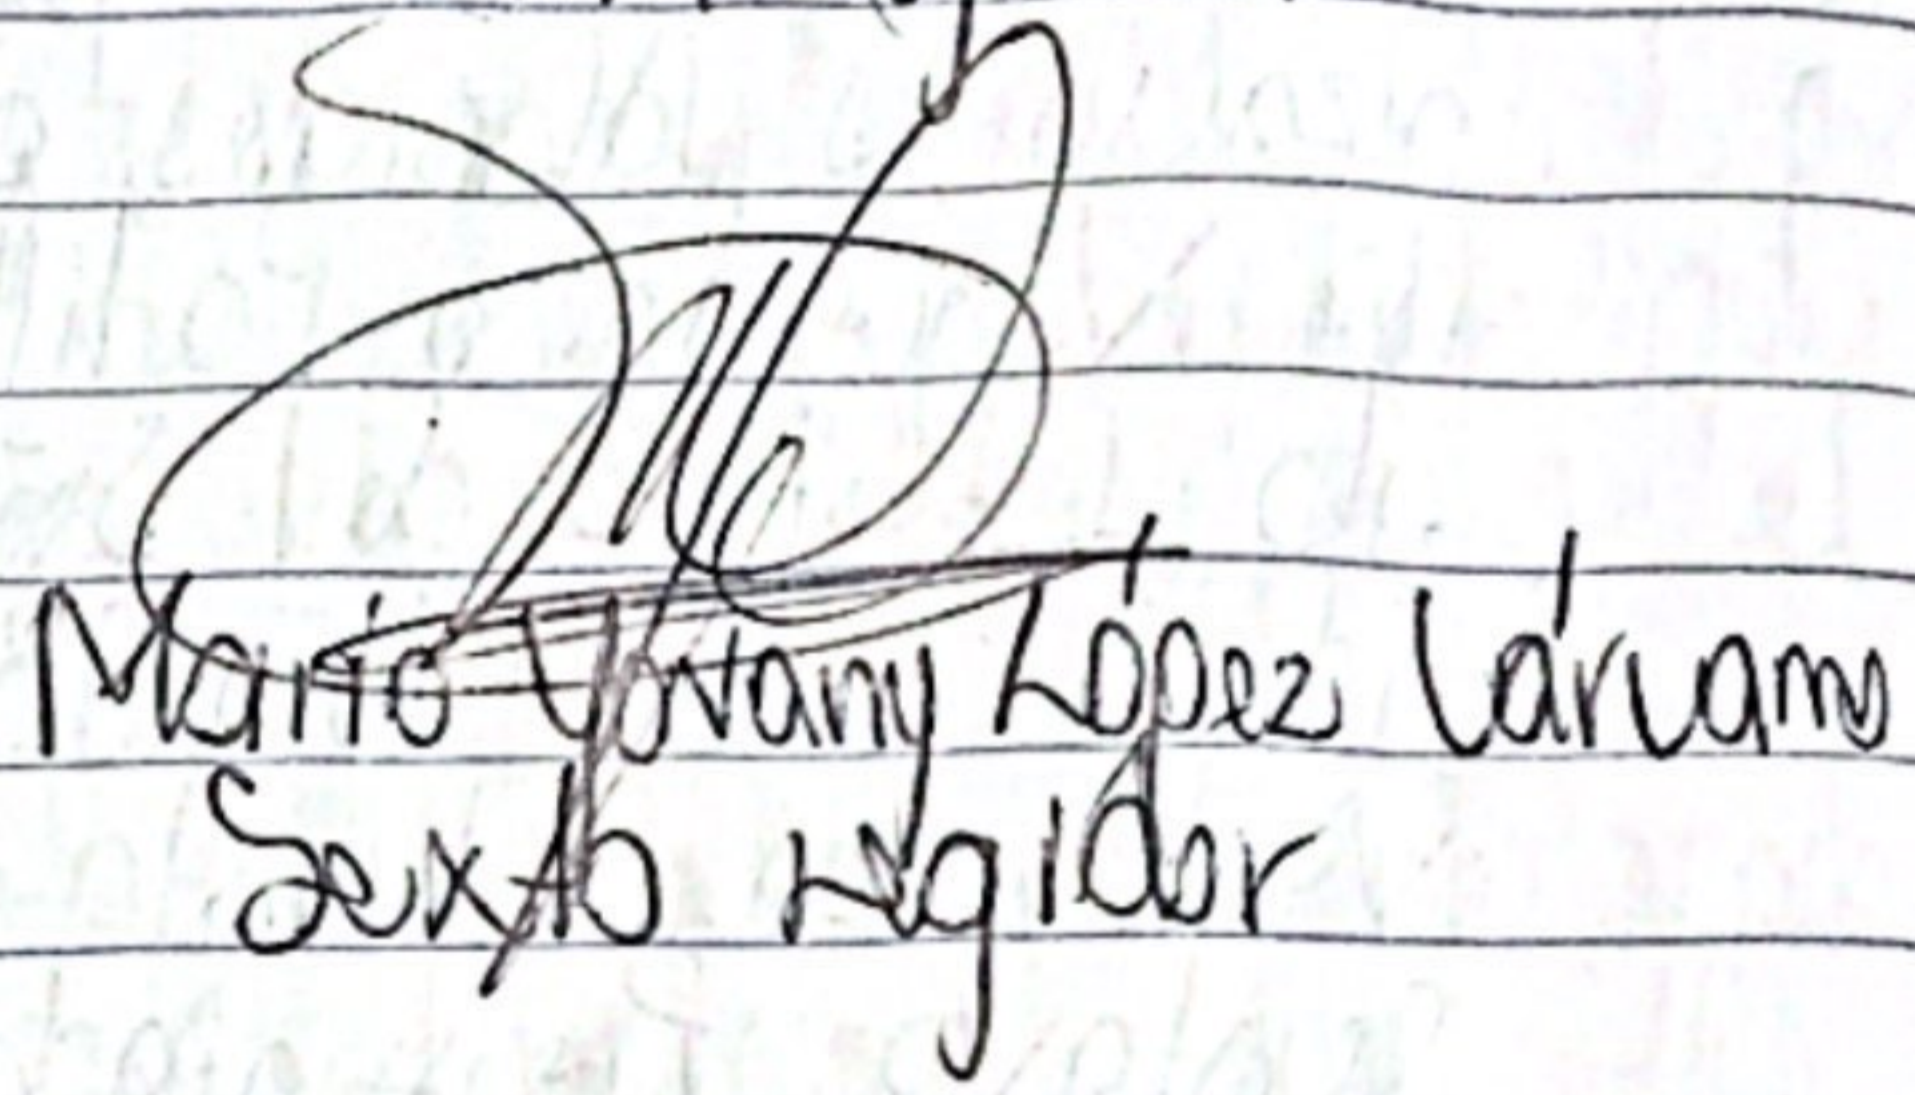 Mario Yovany López Cárcamo
Sexto regidor